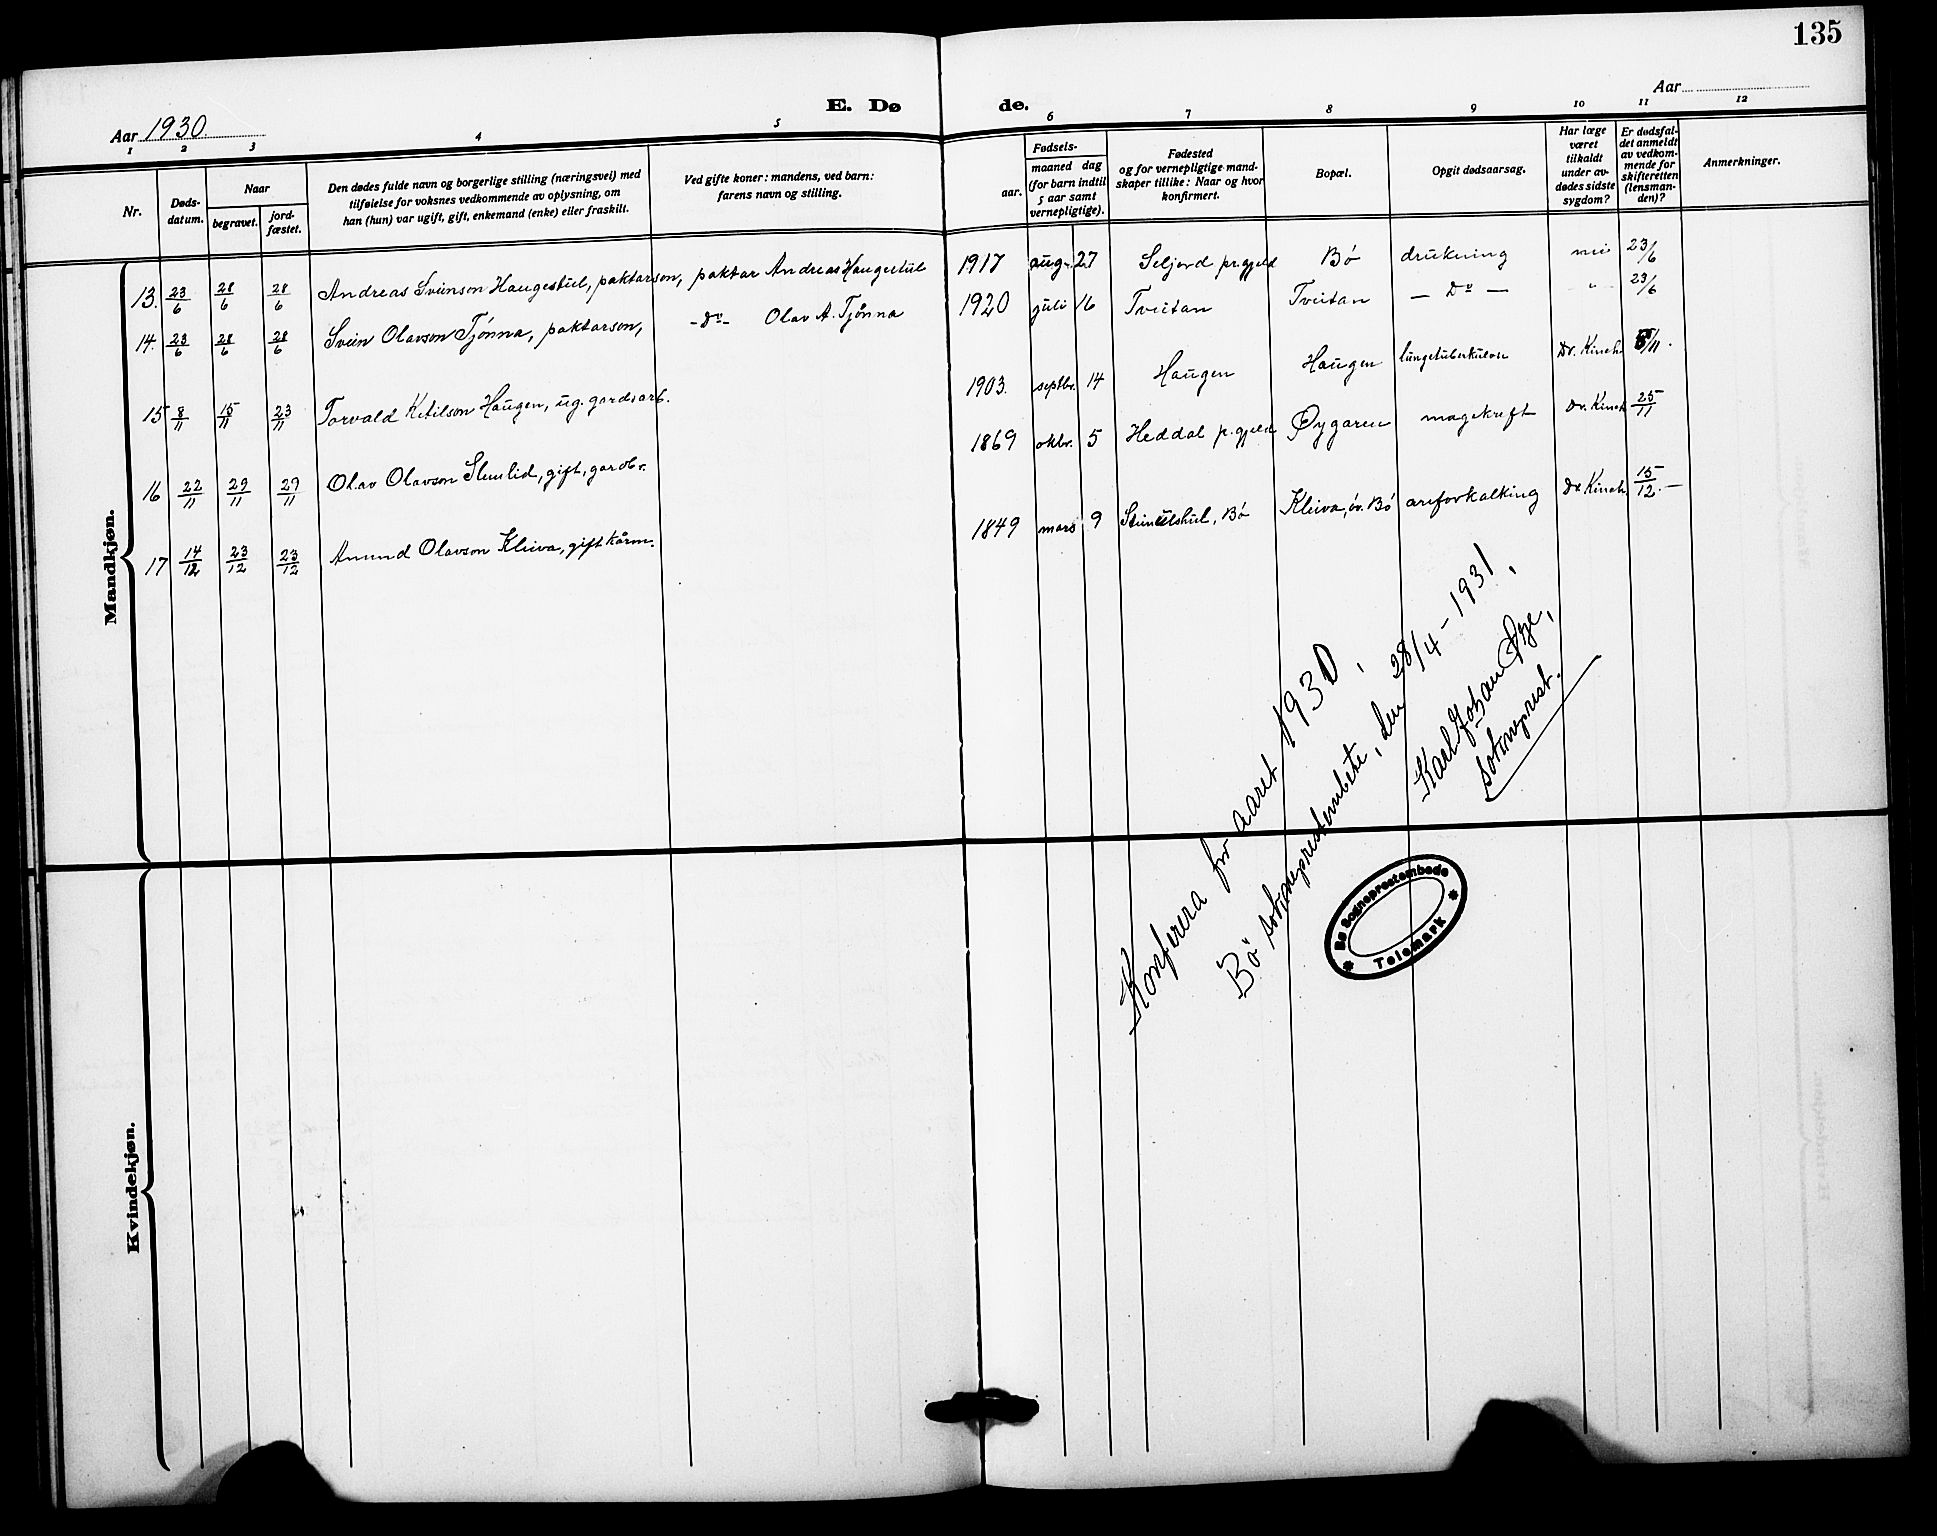 135
E. Døde.
Aar 1930
Aar
1 2 3 4 5 6 7 8 9 10 11 12
Nr.
Døds-
datum.
Naar
begravet.
jord-
fæstet.
Den dødes fulde navn og borgerlige stilling (næringsvei) med
tilføielse for voksnes vedkommende av oplysning, om
han (hun) var ugift, gift, enkemand (enke) eller fraskilt.
Ved gifte koner: mandens, ved barn:
farens navn og stilling.
Fødsels-
aar.
maaned dag
(for barn indtil
5 aar samt
vernepligtige).
Fødested
og for vernepligtige mand-
skaper tillike: Naar og hvor
konfirmert.
Bopæl.
Opgit dødsaarsag.
Har læge
været
tilkaldt
under av-
dødes sidste
sygdom?
Er dødsfal-
det anmeldt
av vedkom-
mende for
skifteretten
(lensman-
den)?
Anmerkninger.
Mandkjøn.
13. 23/6 28/6 28/6 Andreas Sveinson Haugestul, paktarson, paktar Andreas Haugestul 1917 aug. 27 Seljord pr.gjeld Bö drukning nei 23/6
14. 23/6 28/6 28/6 Svein Olavson Tjönna, paktarson, -Do- Olav A. Tjönna 1920 juli 16 Tveitan Tveitan — Do — " 23/6
15 8/11 15/11 23/11 Torvald Ketilson Haugen, ug. gardsarb. 1903. septbr. 14 Haugen Haugen lungetuberkulose Dr. Kinck /11.
16 22/11 29/11 29/11 Olav Olavson, gift, gardbr. 1869 okbr. 5 Heddal p.gjeld Øygaren magekreft Dr. Kinck 25/11
17 14/12 23/12 23/12 Anund Olavson Kleiva, gift kårm. 1849 mars 9 Bö Kleiva, öv. Bö areforkalking Dr. Kinck 15/12.—
Konferera for aaret 1930.
Bö sokneprestembete, den 28/4 - 1931.
Karl Johan Øye,
sokneprest.
Bø Sogneprestembede
* Telemark *
Kvindekjøn.